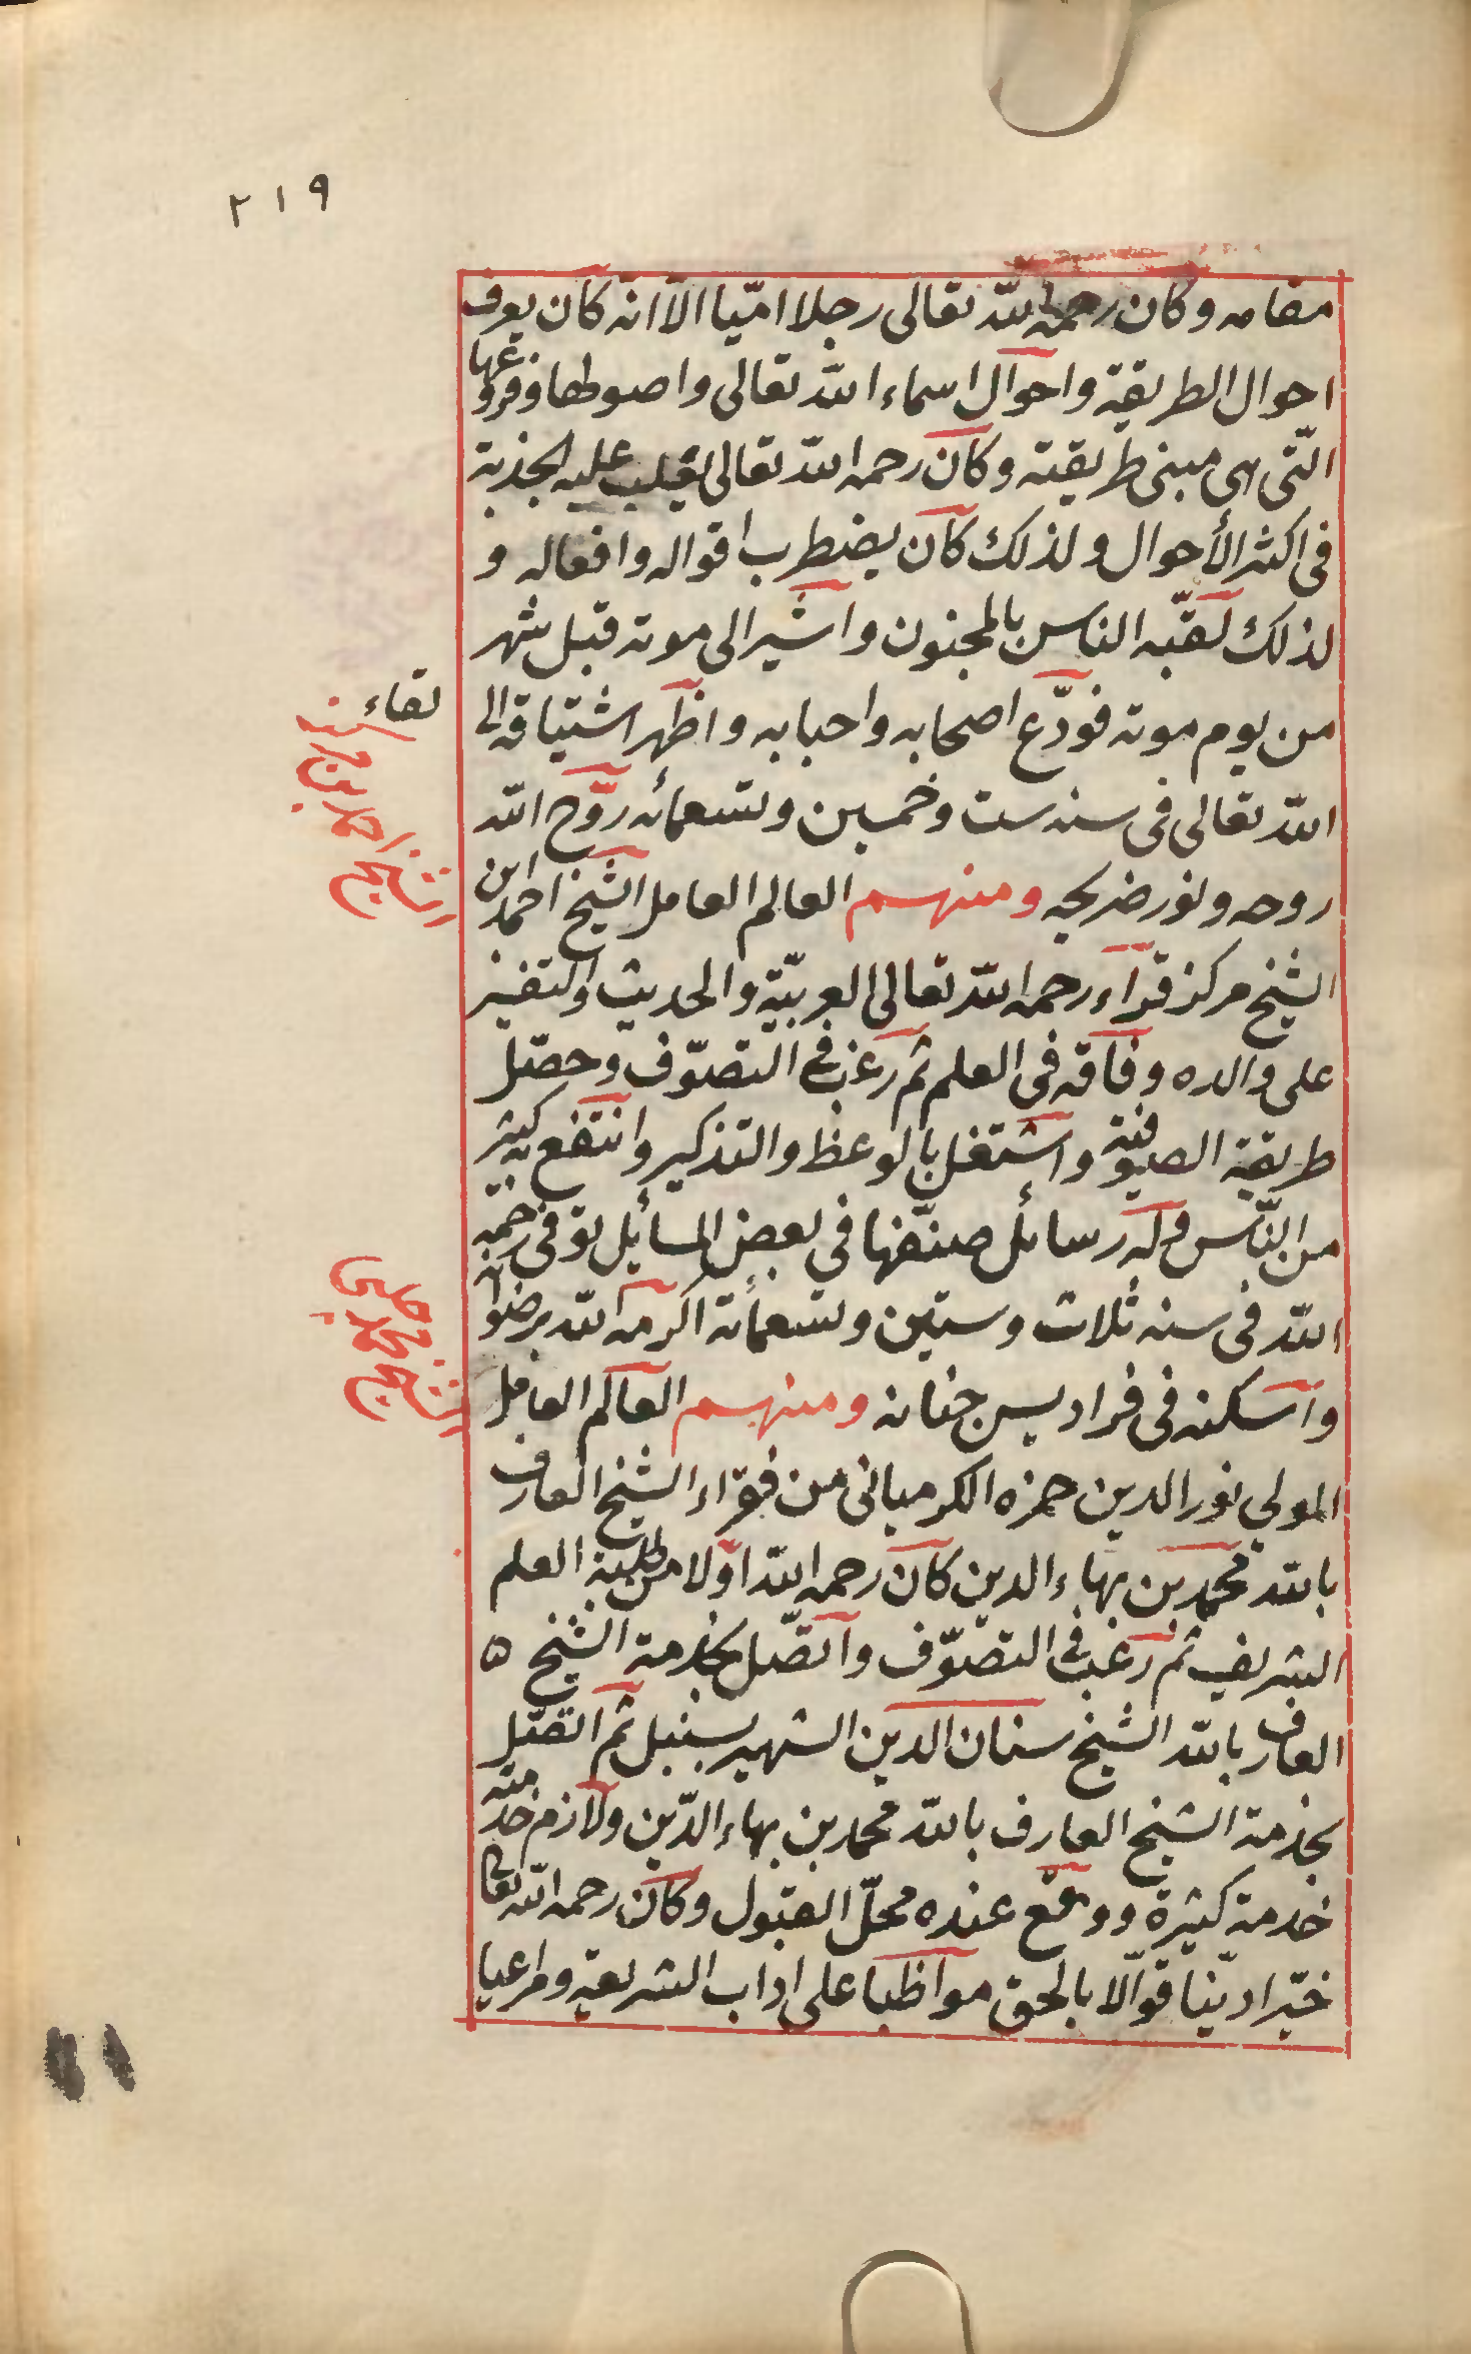 ٢١٩
مقامه وكان رحمه الله تعالى رجلا امّيا الاّ انه كان يعرف
احوال الطريقة واحوال اسماء الله تعالى واصولها وفروعها
التّى هى مبنى طريقته وكان رحمه الله تعالى يغلب عليه الجذبة
فى اكثر الأحوال ولذلك كان يضطرب اقواله وافعاله و
لذلك لقّبه الناس بالمجنون واشير الى موته قبل شهر
من يوم موته فودّع اصحابه واحبابه واظهر اشتياقه الى
لقاء
الله تعالى فى سنه ست وخمسين وتسعمائه روّح الله
روحه ونور ضريحه ومنهم العالم العامل الشيخ احمد ابن
الشيخ احمد بن مركز
الشيخ مركز قراء رحمه الله تعالى العربيّة والحديث والتفسير
على والده وفاقه فى العلم ثم رغب فى التصوّف وحصّل
طريقة الصوفية واشتغل بالوعظ والتذكير وانتفع به كثير
من النّاس وله رسائل صنّفها فى بعض المسائل توفى رحمه
الله فى سنه ثلاث وستين وتسعمائة اكرمه الله برضوانه
واسكنه فى فراديس جنانه ومنهم العالم العامل
الشيخ محمد چلبى
المولى نور الدين حمزه الكرميانى من فقراء الشيخ العارف
بالله محمد بن بهاء الدين كان رحمه الله اوّلا من طلبة العلم
الشريف ثم رغب فى التصوّف واتّصل بخدمة الشيخ ه
العارف بالله الشيخ سنان الدين الشهير بسنبل ثم اتّصل
بخدمة الشيخ العارف بالله محمد بن بهاء الدّين ولازم خدمته
خدمة كثيرة ووقع عنده محلّ القبول وكان رحمه الله تعالى
خيّرا ديّنا قوّالا بالحق مواظبا على اداب الشريعة ومراعيا